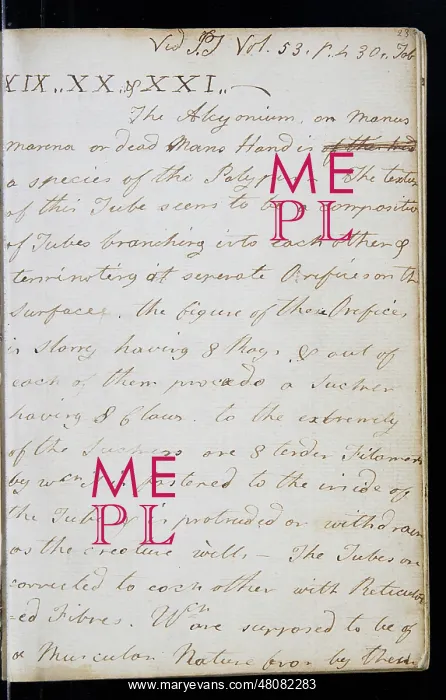 23
Vid P.T Vol. 53. p. 430. Tab
XIX.. XX & XXI..
The Alcyonium, or Manus
marina or dead Mans Hand is
a species of the Polyp The textur
of this Tube seems to be a compositio
of Tubes branching into each other &
terminating at seperate Orefices on th
surface. the figure of these Orefices
is starry having 8 Rays & out of
each of them proceeds a Sucker
having 8 Claws. to the extremity
of the Suckers are 8 tender Filamen
by wch fastened to the inside of
the Tube is protruded or withdrawn
as the creature wills — The Tubes are
connected to each other with Reticula
-ed Fibres. Wch are supposed to be of
a Muscular Nature for by them
ME
PL
ME
PL
www.maryevans.com/48082283